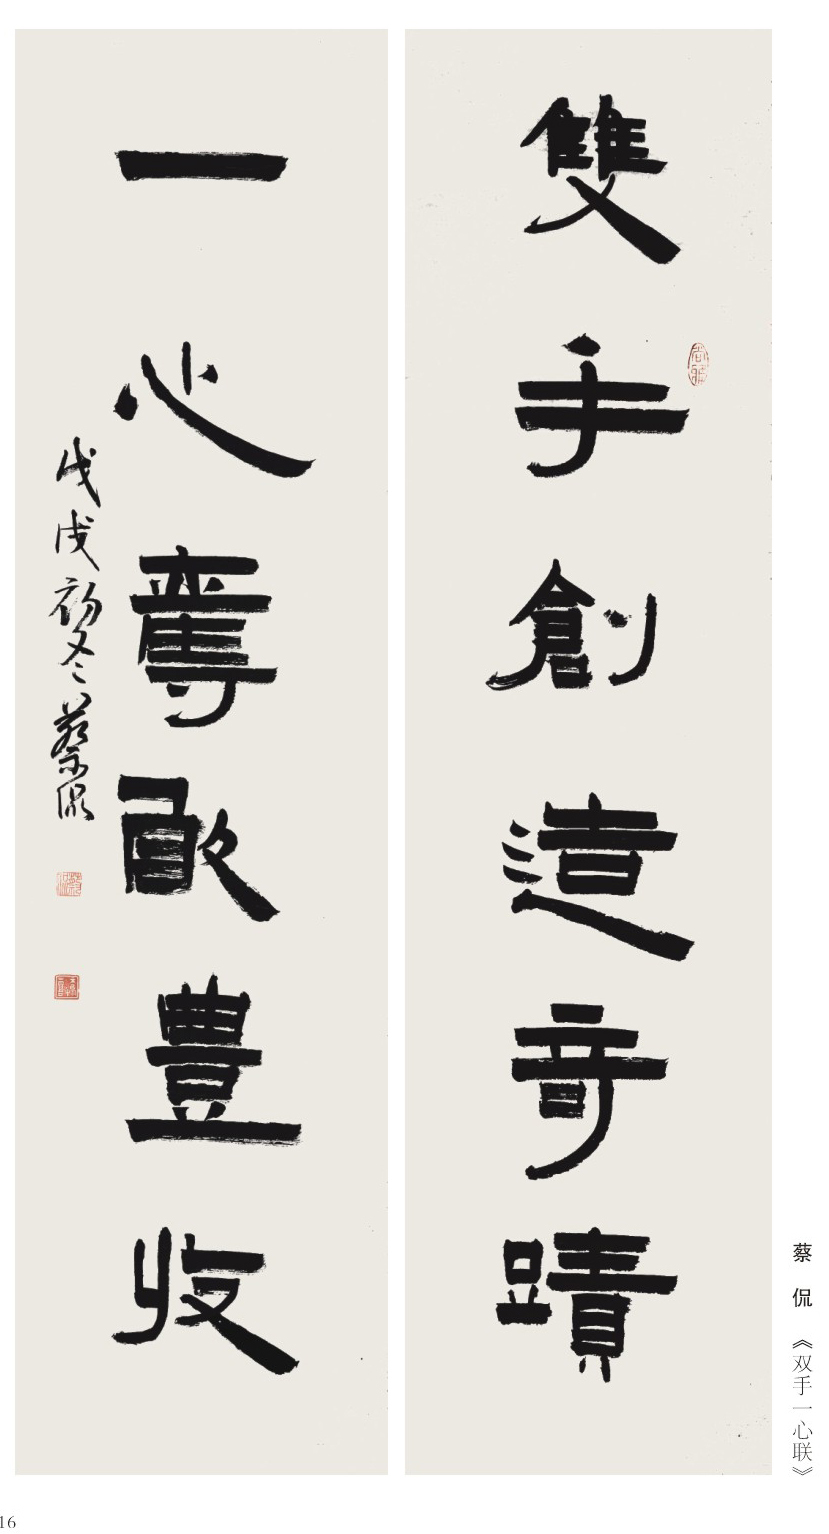 雙手創造奇蹟
一心奪取豊收
戊戌初冬蔡侃
蔡侃《双手一心联》
16